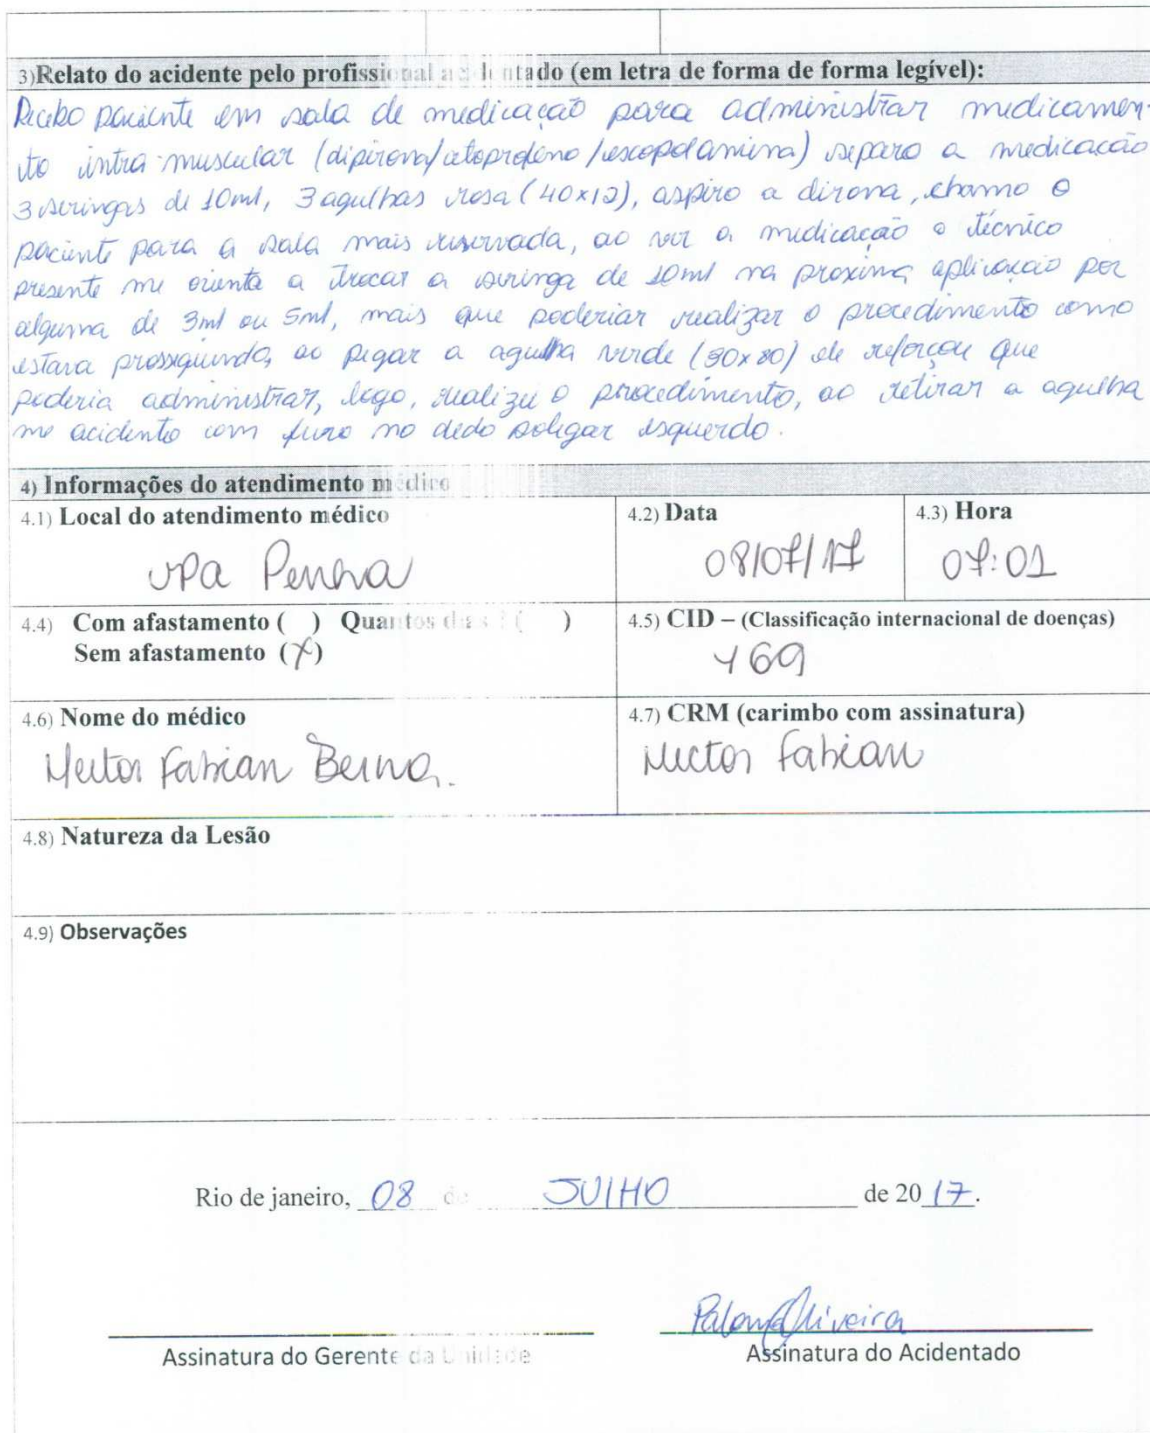 3)Relato do acidente pelo profissional acidentado (em letra de forma de forma legível):
Recebo paciente em sala de medicação para administrar medicamen-
to intra-muscular (dipirona/cetoprofeno/escopolamina) separo a medicação
3 seringas de 10ml, 3 agulhas rosa (40x12), aspiro a dirona, chamo o
paciente para a sala mais reservada, ao ver a medicação o técnico
presente me orienta a trocar a seringa de 10ml na proxima aplicação por
alguma de 3ml ou 5ml, mais que poderiar realizar o procedimento como
estava prosseguindo, ao pegar a agulha verde (30x80) ele reforçou que
poderia administrar, logo, realizei o procedimento, ao retirar a agulha
me acidento com furo no dedo polegar esquerdo.
4) Informações do atendimento médico
4.1) Local do atendimento médico 4.2) Data 4.3) Hora
UPA Penha 08/07/17 07:01
4.4) Com afastamento ( ) Quantos dias ? ( ) 4.5) CID – (Classificação internacional de doenças)
Sem afastamento (X) Y69
4.6) Nome do médico 4.7) CRM (carimbo com assinatura)
Hector Fabian Hector Fabian
4.8) Natureza da Lesão
4.9) Observações
Rio de janeiro, 08 de JULHO de 2017.
Paloma Oliveira
Assinatura do Gerente da Unidade Assinatura do Acidentado